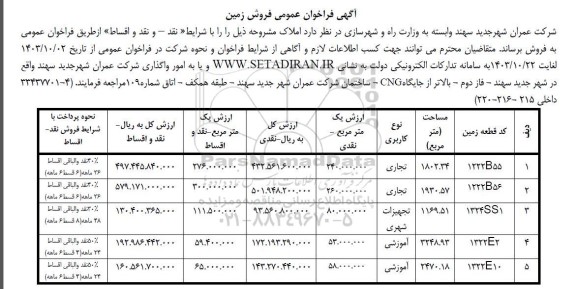 آگهی فراخوان عمومی فروش زمین
شرکت عمران شهرجدید سهند وابسته به وزارت راه و شهرسازی در نظر دارد املاک مشروحه ذیل را را با شرایط« نقد – و نقد و اقساط» ازطریق فراخوان عمومی
به فروش برساند. متقاضیان محترم می توانند جهت کسب اطلاعات لازم و آگاهی از شرایط فراخوان و نحوه شرکت در فراخوان عمومی از تاریخ ۱۴۰۳/۱۰/۰۲
لغایت ۱۴۰۳/۱۰/۲۲به سامانه تدارکات الکترونیکی دولت به نشانی WWW.SETADIRAN.IR و یا به امور واگذاری شرکت عمران شهرجدید سهند واقع
در شهر جدید سهند – فاز دوم – بالاتر از جایگاهCNG – ساختمان شرکت عمران شهر جدید سهند – طبقه همکف – اتاق شماره۱۰۹مراجعه فرمایند. (۴-۳۳۴۳۷۷۰۱
داخلی ۲۱۵ -۲۱۶-۲۲۰)
ردیف | کد قطعه زمین | مساحت (متر مربع) | نوع کاربری | ارزش یک متر مربع – نقدی | ارزش کل به ریال-نقدی | ارزش یک متر مربع-نقد و اقساط | ارزش کل به ریال- نقد و اقساط | نحوه پرداخت با شرایط فروش نقد- اقساط
۱ | ۱۲۲۲B۵۵ | ۱۸۰۲.۳۴ | تجاری | ۴۳۲.۵۶۱.۶۰۰.۰۰۰ | ۲۷۶.۰۰۰.۰۰۰ | ۴۹۷.۴۴۵.۸۴۰.۰۰۰ | ۳۰٪نقد والباقی اقساط ۳۶ ماهه(۶ قسط۶ ماهه)
۲ | ۱۲۲۲B۵۶ | ۱۹۳۰.۵۷ | تجاری | ۲۶۰.۰۰۰.۰۰۰ | ۵۰۱.۹۴۸.۲۰۰.۰۰۰ | ۳۰۰.۰۰۰.۰۰۰ | ۵۷۹.۱۷۱.۰۰۰.۰۰۰ | ۳۰٪نقد والباقی اقساط ۳۶ ماهه(۶ قسط۶ ماهه)
۳ | ۱۳۳۴SS۱ | ۱۱۶۹.۵۱ | تجهیزات شهری | ۸۰.۰۰۰.۰۰۰ | ۹۳.۵۶۰.۸۰۰.۰۰۰ | ۱۱۱.۵۰۰.۰۰۰ | ۱۳۰.۴۰۰.۳۶۵.۰۰۰ | ۲۰٪نقد والباقی اقساط ۴۸ ماهه(۸ قسط۶ ماهه)
۴ | ۱۳۲۲E۲ | ۳۲۴۸.۹۳ | آموزشی | ۵۳.۰۰۰.۰۰۰ | ۱۷۲.۱۹۳.۲۹۰.۰۰۰ | ۵۹.۴۰۰.۰۰۰ | ۱۹۲.۹۸۶.۴۴۲.۰۰۰ | ۵۰٪نقد والباقی اقساط ۲۴ ماهه(۴ قسط۶ ماهه)
۵ | ۱۳۲۲E۱۰ | ۲۴۷۰.۱۸ | آموزشی | ۵۸.۰۰۰.۰۰۰ | ۱۴۳.۲۷۰.۴۴۰.۰۰۰ | ۶۵.۰۰۰.۰۰۰ | ۱۶۰.۵۶۱.۷۰۰.۰۰۰ | ۵۰٪نقد والباقی اقساط ۲۴ ماهه(۴ قسط۶ ماهه)
۰۲۱-۸۸۳۴۹۶۷۰-۵